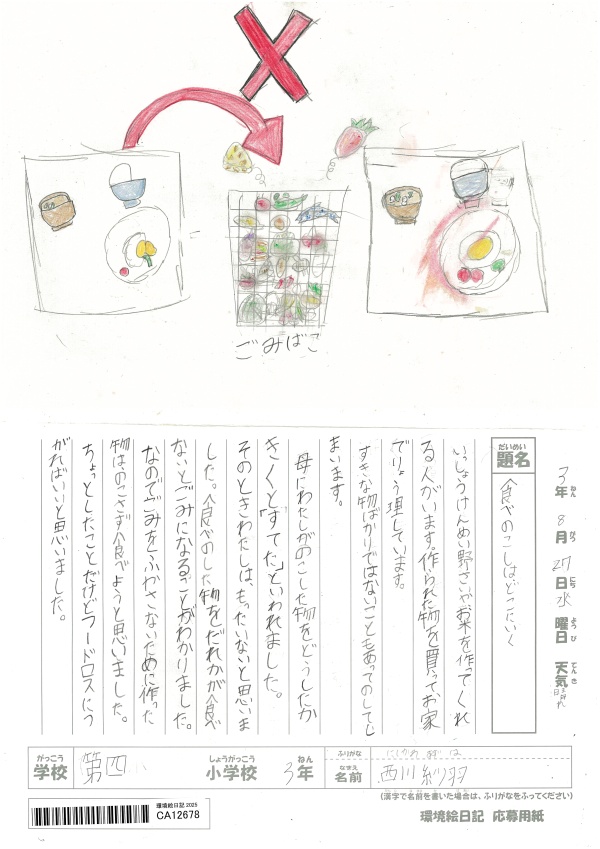 ごみばこ
3年 8月 27日 水曜日 天気 晴れ
ねん がつ にち ようび てんき
だいめい
題名
食べのこしはどこにいく
いっしょうけんめい野さいやお米を作ってくれ
る人がいます。作られた物を買って、お家
でりょう理しています。
すきな物ばかりではないこともあってのこしてし
まいます。
母にわたしがのこした物をどうしたか
きくと「すてた」といわれました。
そのときわたしは、もったいないと思いま
した。食べのした物をだれかが食べ
ないとごみになることがわかりました。
なのでごみをふやさないために作った
物はのこさず食べようと思いました。
ちょっとしたことだけどフードロスにつ
がればいいと思いました。
がっこう
学校
第四
しょうがっこう
小学校
3年
ねん
ふりがな
なまえ
名前
西川紗羽
(漢字で名前を書いた場合は、ふりがなをふってください)
環境絵日記 2025
CA12678
環境絵日記 応募用紙